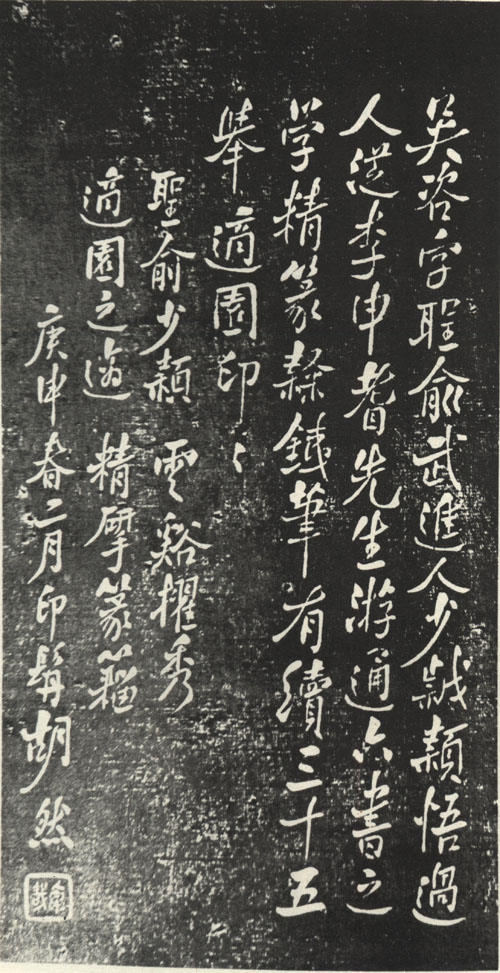 吴咨字聖俞武進人少穎悟過
人從李申耆先生游通六書之
学精篆隸鐵筆有續三十五
舉適園印〻
聖俞少穎 雲谿擢秀
適園之 精揅篆籀
庚申春二月印髯胡然